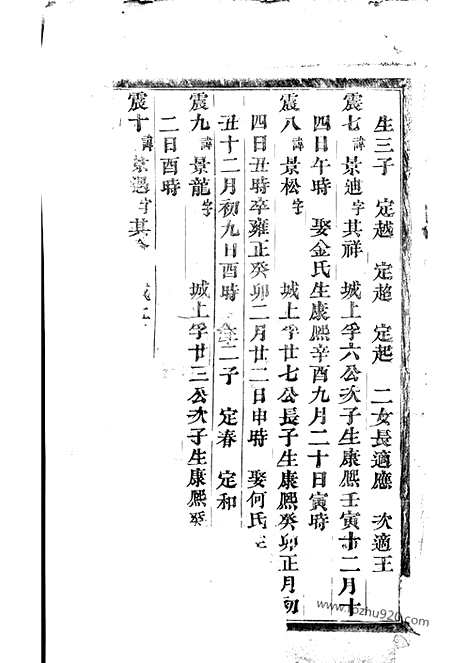 生三子 定越 定趨 定起 二女長適應 次適王
震七 諱 景迪 字 其祥 城上孚六公次子生康熙壬寅十二月十
四日午時 娶金氏生康熙辛酉九月二十日寅時
震八 諱 景松 字 城上孚廿七公長子生康熙癸卯正月初
四日丑時卒雍正癸卯二月廿二日申時 娶何氏生
丑十二月初九日酉時 二子 定春 定和
震九 諱 景龍 字 城上孚廿三公次子生康熙癸
二日酉時
震十 諱 景 字 其
www.lozhu920.com